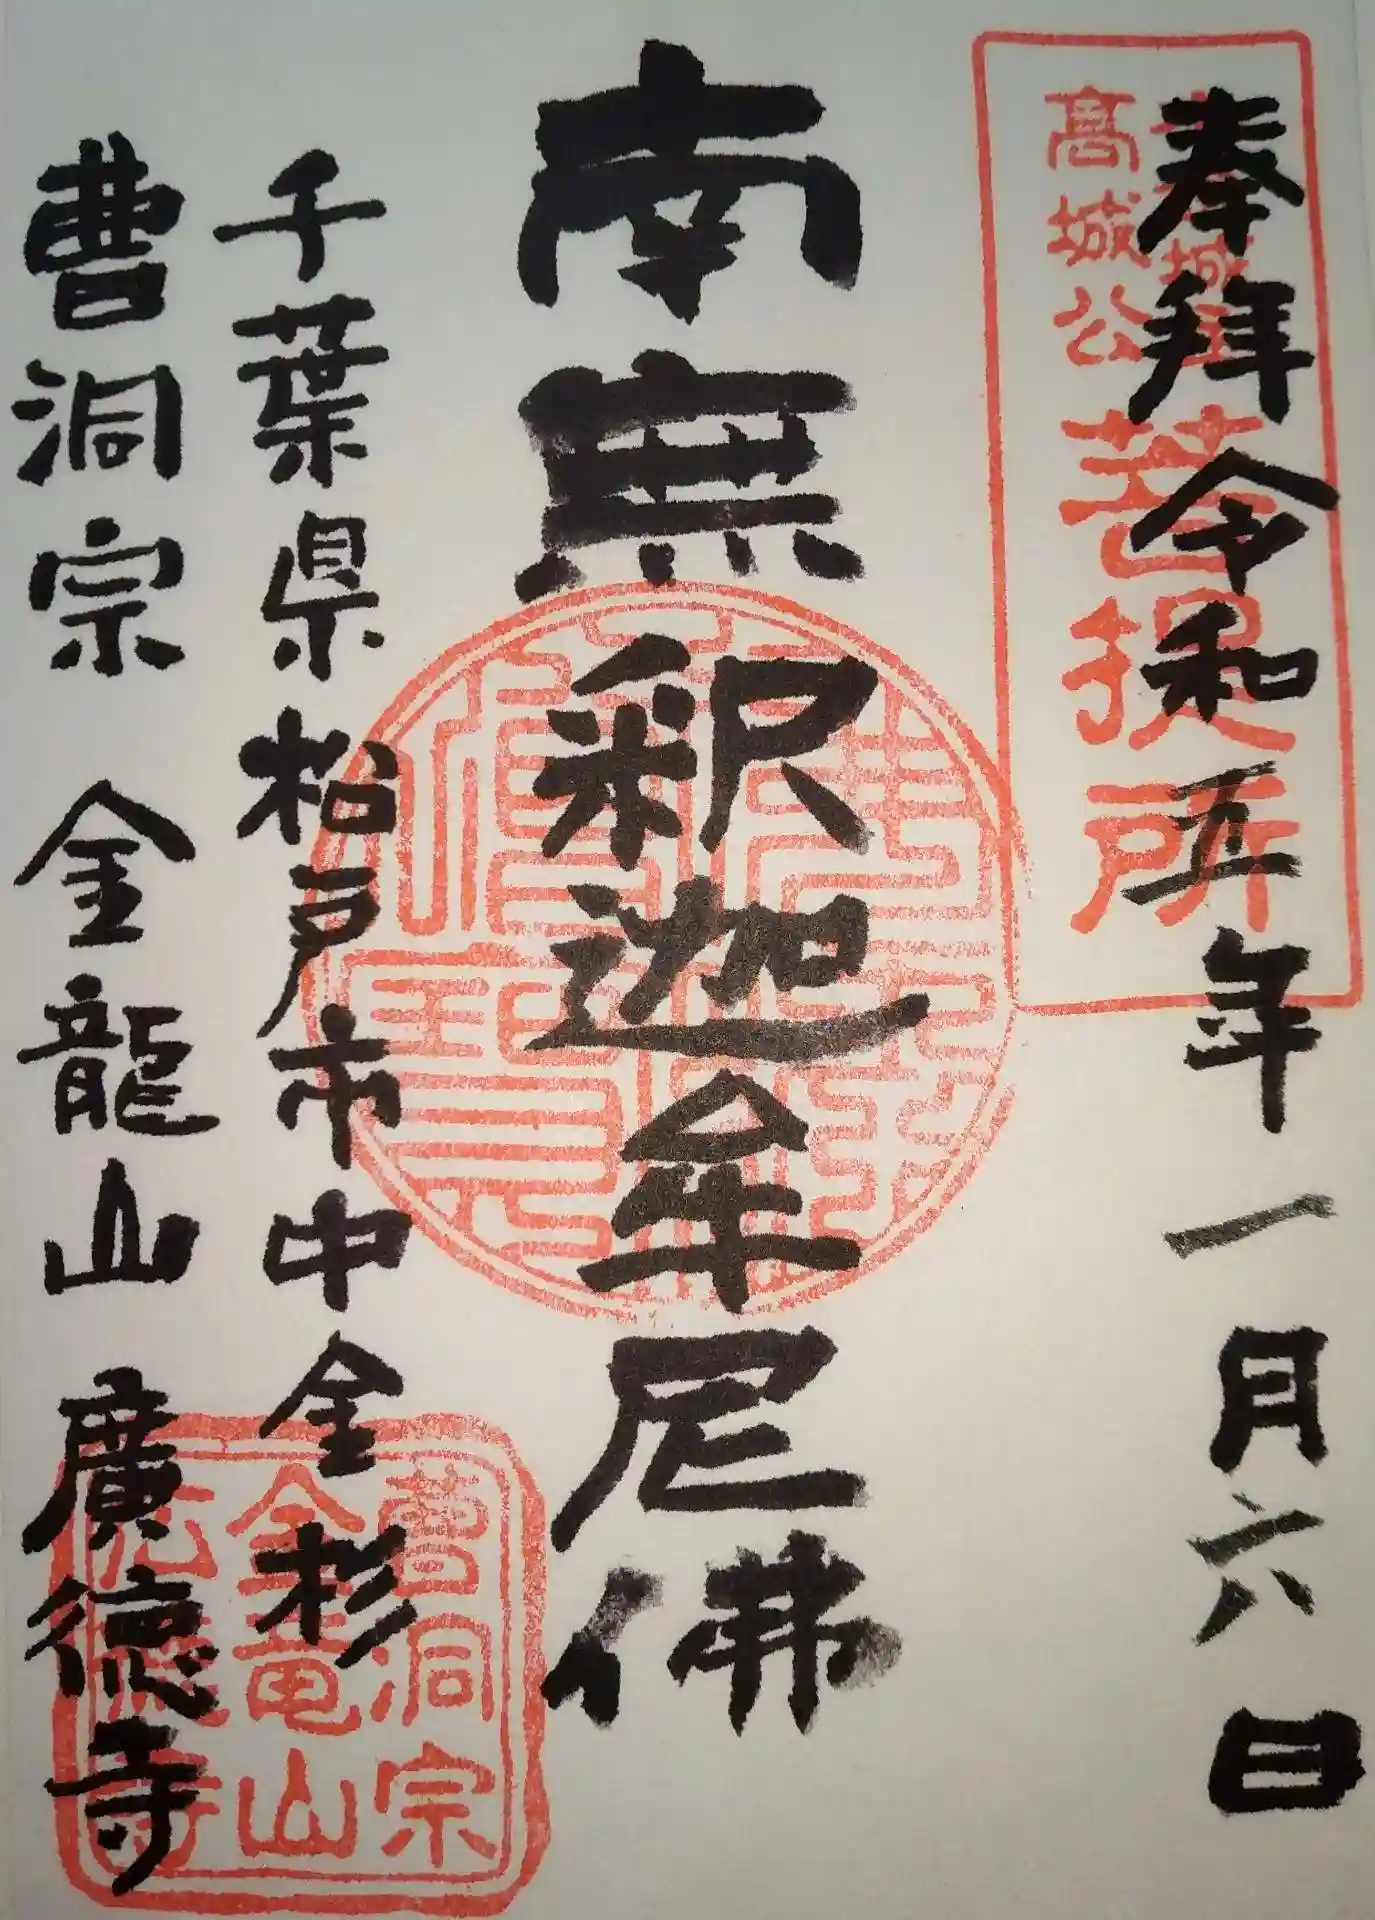 奉拝 令和五年一月六日
高城公
菩提所
南無釈迦牟尼佛
千葉県松戸市中金杉
曹洞宗 金龍山 廣徳寺
曹洞宗
金竜山